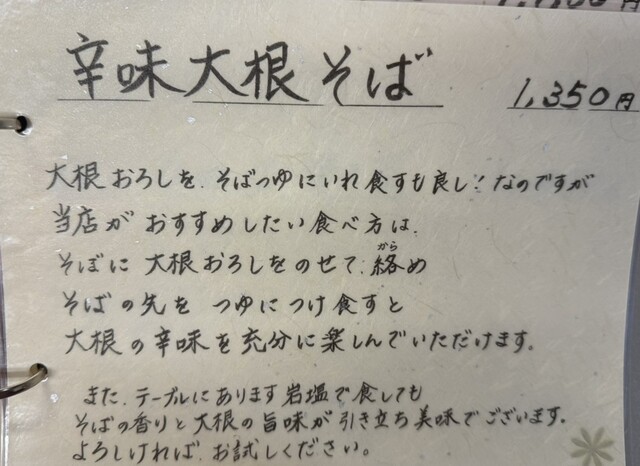 辛味大根そば
1,350円
大根おろしを、そばつゆにいれ食すも良し！なのですが
当店が おすすめしたい食べ方は、
そばに 大根おろしをのせて、絡め
から
そばの先を つゆにつけ食すと
大根の辛味を充分に楽しんでいただけます。
また、テーブルにあります岩塩で食しても
そばの香りと大根の旨味が引き立ち美味でございます。
よろしければ、お試しください。